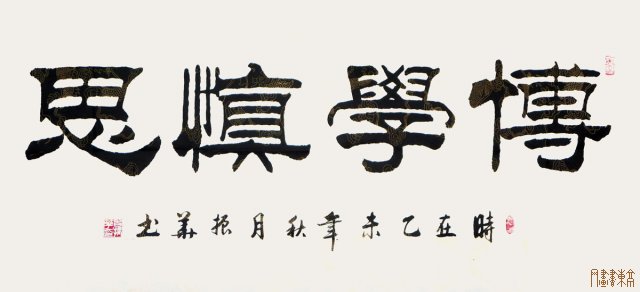 博學慎思
時在乙未年秋月振華书